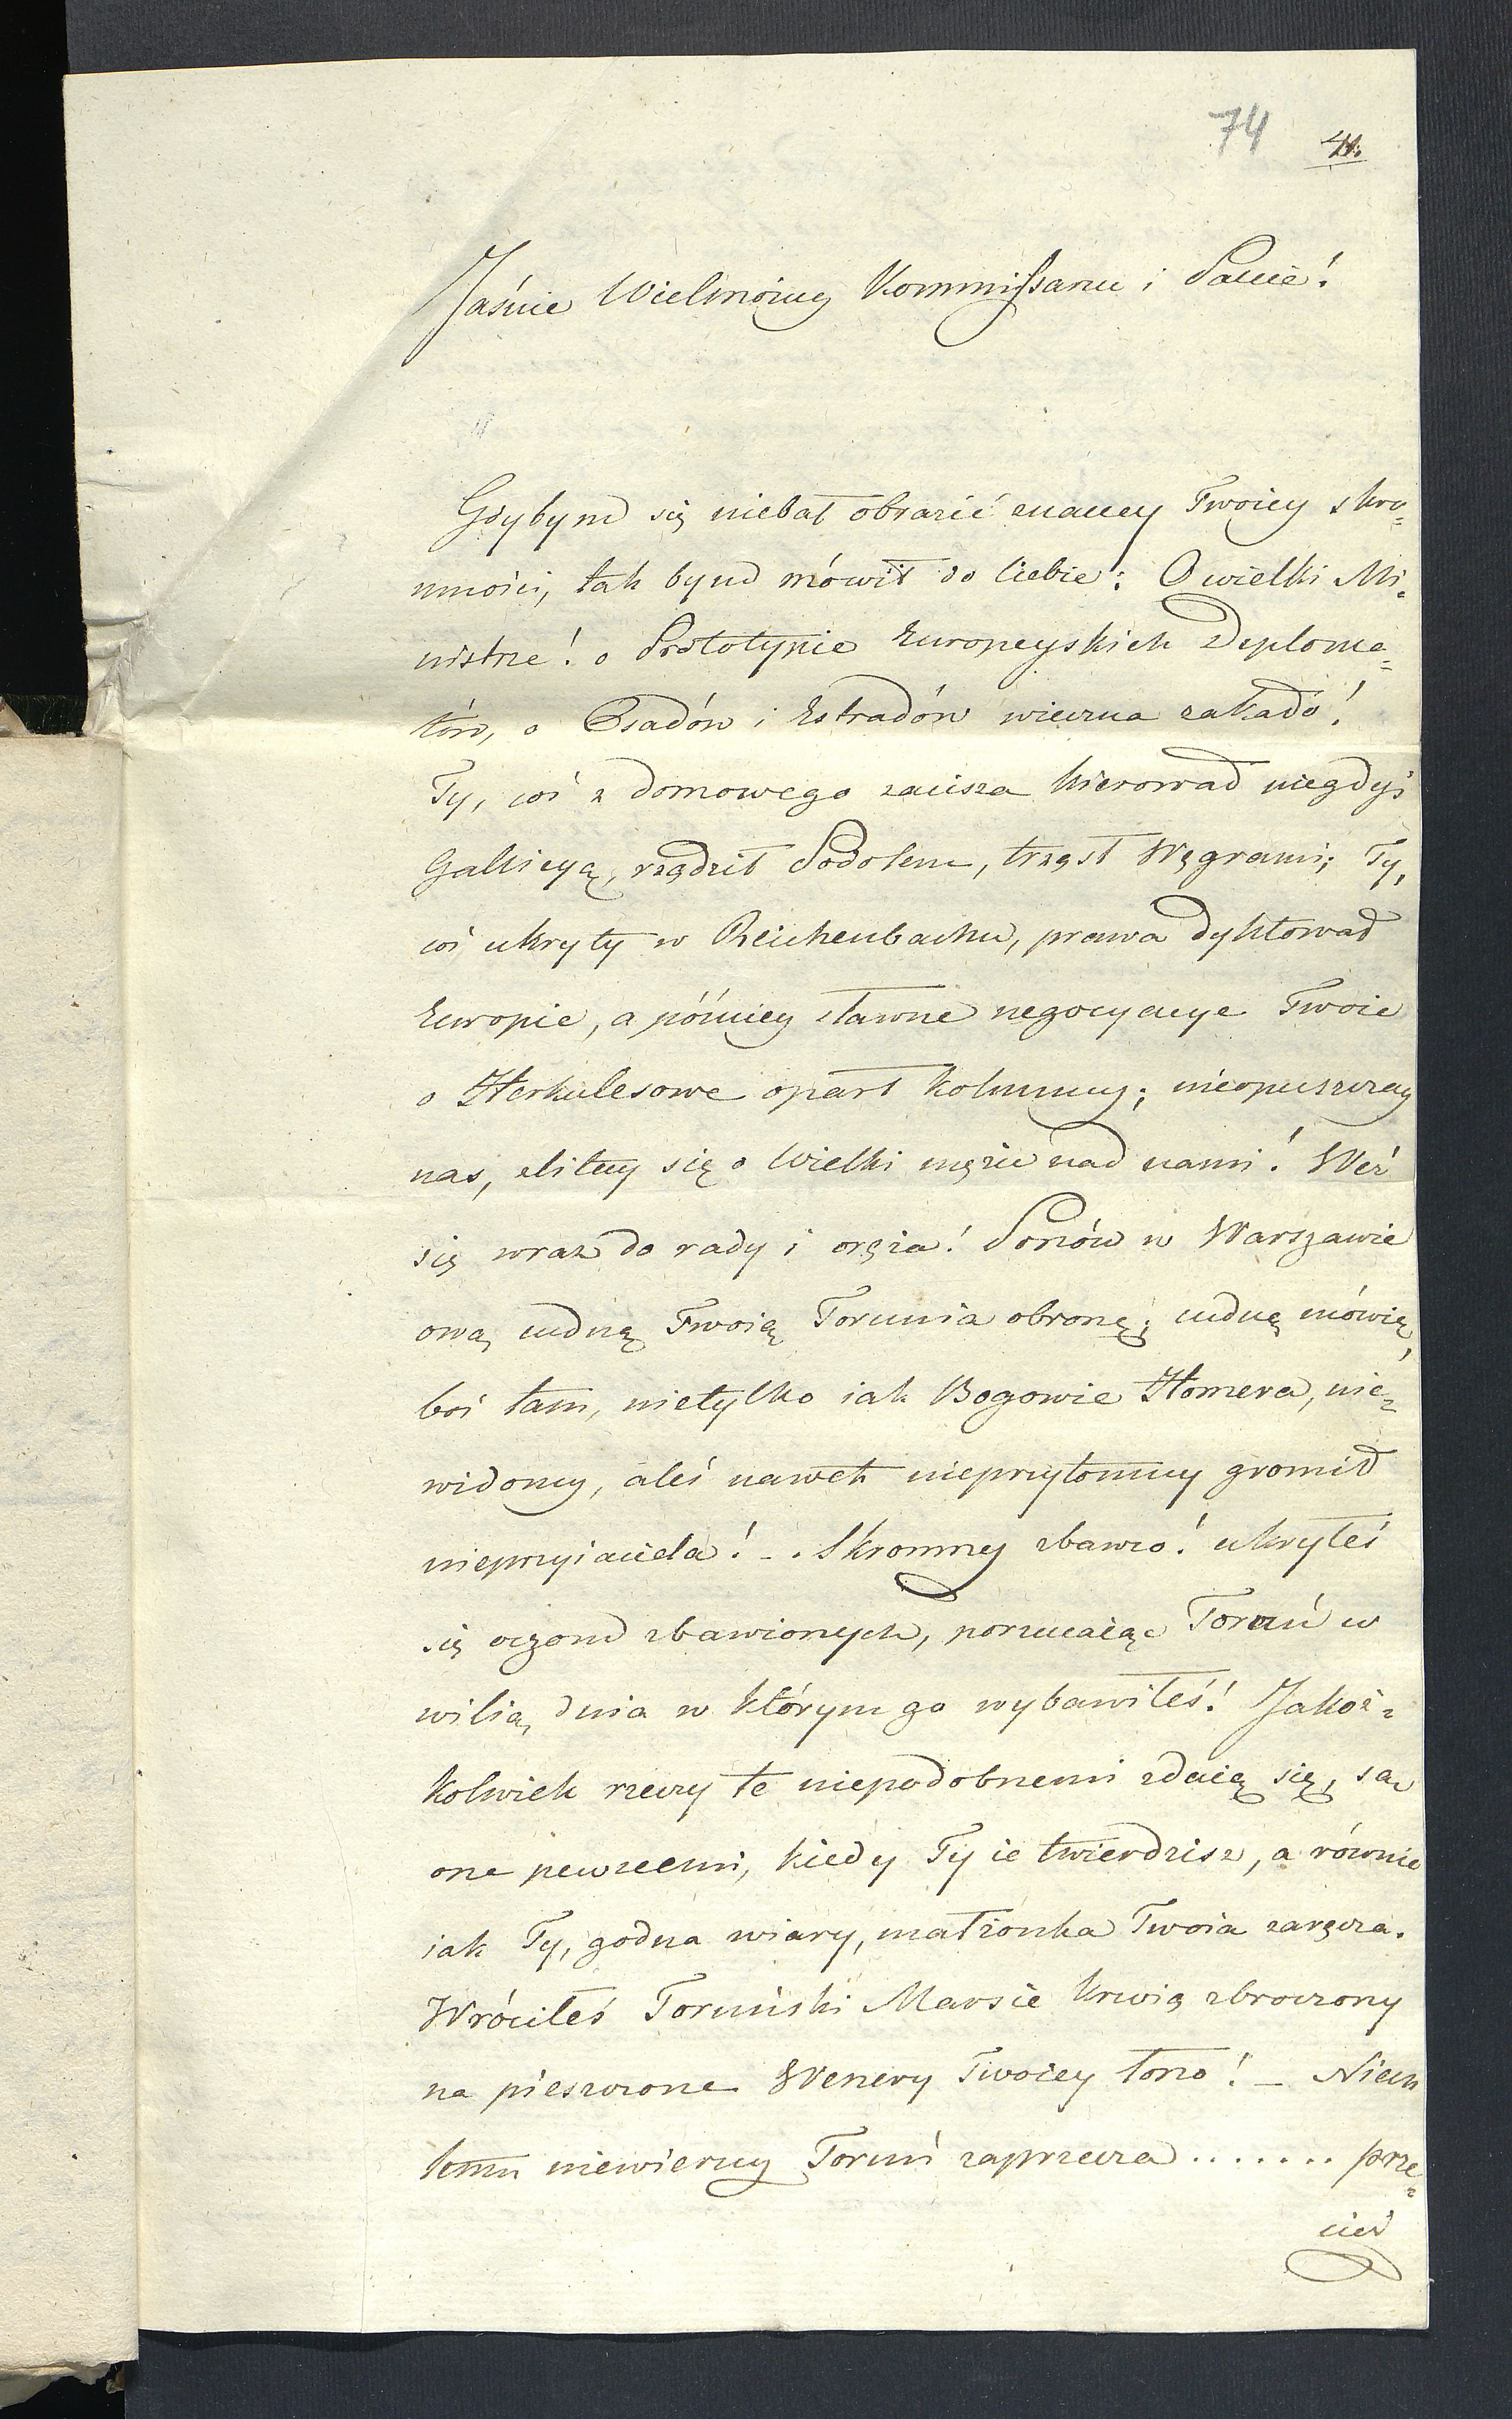 74 41.
Jaśnie Wielmożny Kommissarzu i Panie!
Gdybym się niebał obrazić znaney Twoiey skro=
mności, tak bym mówił do Ciebie: O wielki Mi=
nistrze! o Prototypie Europeyskich Deploma=
tów, o Osadów i Estradów wieczna zakało!
Ty, coś z domowego zacisza kierował niegdyś
Gallicyą, rządził Podolem, trząsł Węgrami; Ty,
coś ukryty w Reichenbachu, prawa dyktował
Europie, a póżniey sławne negocyacye Twoie
o Herkulesowe oparł kolumny; nieopuszczay
nas, zlituy się o Wielki mężu nad nami! Weź
się wraz do rady i oręża! Ponów w Warszawie
ową cudną Twoią Torunia obronę; cudną mówię,
boś tam, nietylko iak Bogowie Homera, nie=
widomy, aleś nawet nieprzytomny gromił
nieprzyiaciela! _. Skromny zbawco! ukryłeś
się oczom zbawionych, porzucaiąc Toruń w
wilią dnia w którym go wybawiłeś! Jakoż=
kolwiek rzeczy te niepodobnemi zdaią się, są
one pewnemi, kiedy Ty ie twierdzisz, a równie
iak Ty, godna wiary, małżonka Twoia zaręcza.
Wróciłeś Toruński Marsie krwią zbroczony
na pieszczone Wenery Twoiey łono! _ Niech
temu niewierny Toruń zaprzecza ....... prze=
cieś